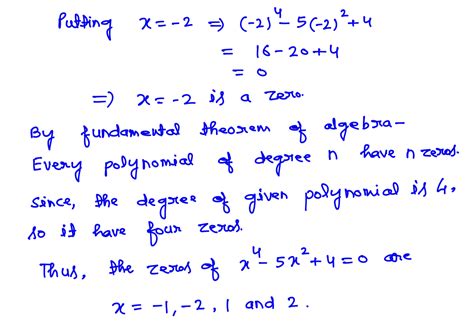 Putting x = -2 ⇒ (-2)⁴ - 5(-2)² + 4
= 16 - 20 + 4
= 0
⇒ x = -2 is a zero.
By fundamental theorem of algebra -
Every polynomial of degree n have n zeros.
since, the degree of given polynomial is 4,
so it have four zeros.
Thus, the zeros of x⁴ - 5x² + 4 = 0 are
x = -1, -2, 1 and 2.